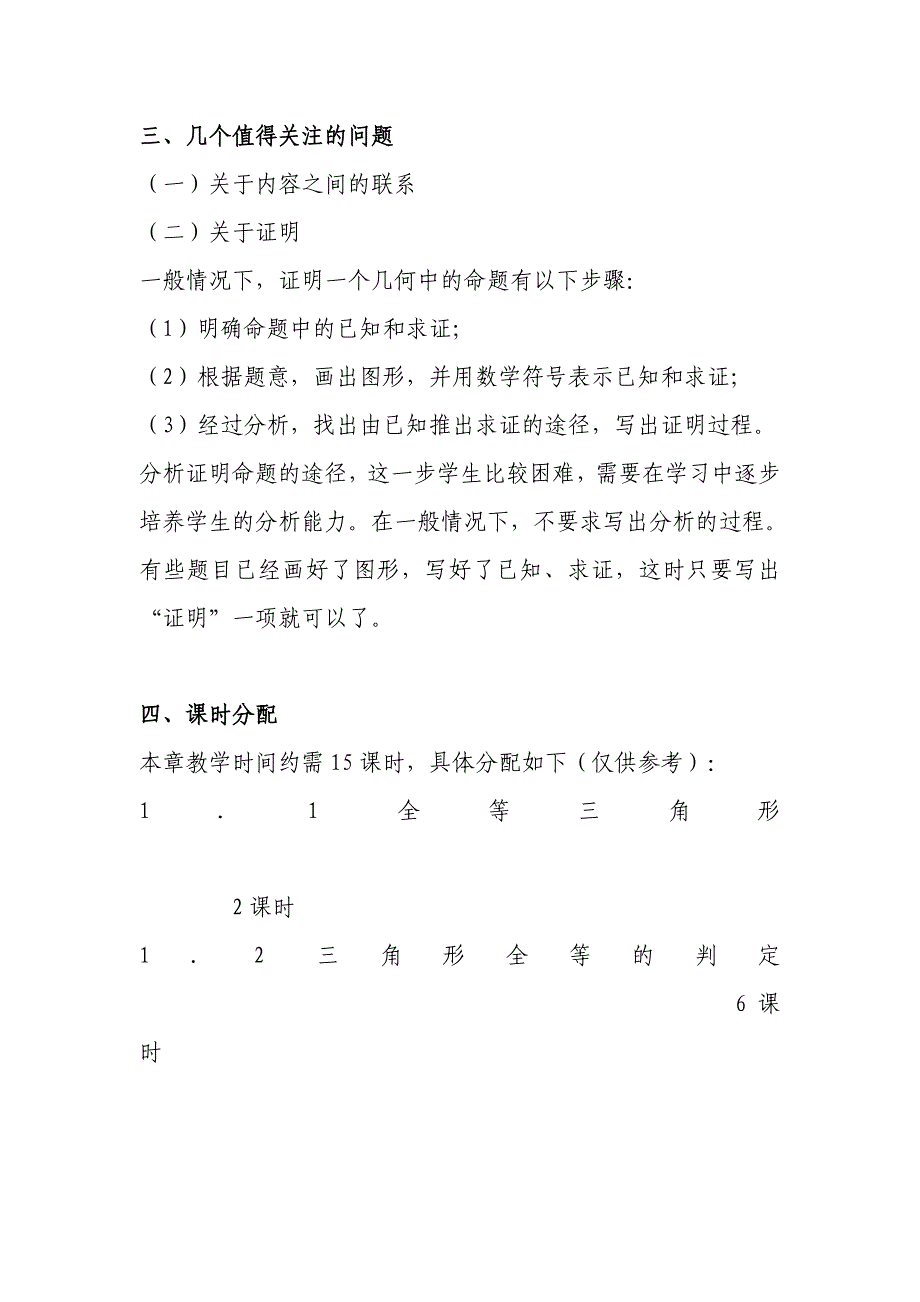 三、几个值得关注的问题
（一）关于内容之间的联系
（二）关于证明
一般情况下，证明一个几何中的命题有以下步骤：
（1）明确命题中的已知和求证；
（2）根据题意，画出图形，并用数学符号表示已知和求证；
（3）经过分析，找出由已知推出求证的途径，写出证明过程。
分析证明命题的途径，这一步学生比较困难，需要在学习中逐步
培养学生的分析能力。在一般情况下，不要求写出分析的过程。
有些题目已经画好了图形，写好了已知、求证，这时只要写出
“证明”一项就可以了。
四、课时分配
本章教学时间约需15课时，具体分配如下（仅供参考）：
1．1全等三角形
2课时
1．2三角形全等的判定
6课
时